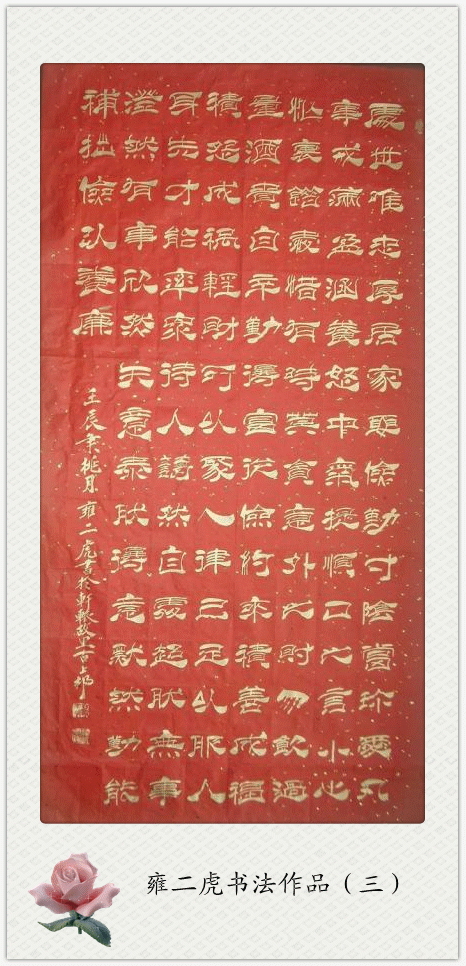 處世唯忠厚居家要儉勤寸陰當珍愛凡
事戒滿盈涵養怒中氣提慎口之言小心
忙裏錯愛惜有時莫貪意外之財勿飲過
量酒貴自辛勤得富從儉約來積善成福
積怨成禍輕財可以聚人律己足以服人
身先才能率眾待人誠然自處超然無事
澄然有事欣然失意泰然得意默然勤能
補拙儉以養廉
壬辰年桃月雍二虎書於軒轅故里古上邽
雍二虎书法作品（三）